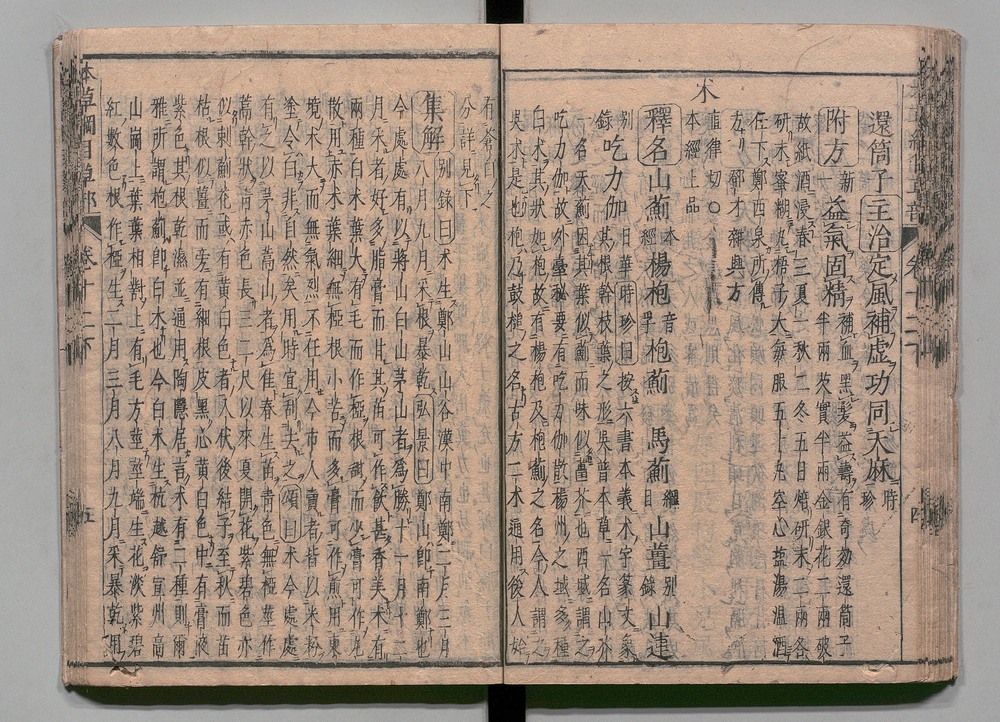 還筒子主治定風補虛功同天麻時珍
附方新一益氣固精補血黑髮益壽有奇効還筒子半兩芡實半兩金銀花二兩破
故紙酒浸春三夏二秋二冬五日焙研末二兩各
研末蜜糊丸梧子大每服五十丸空心盐湯溫酒
任下鄭西泉所傳
方鄧才雜興方
朮直律切〇
本經上品
釋名山薊本經楊枹音孚枹薊馬薊綱目山薑別錄山連
別錄吃力伽日華時珍曰按六書本義朮字篆文象
其根幹枝葉之形吳普本草一名山芥
一名天薊因其葉似薊而味似薑芥也西域謂之
吃力伽故外臺秘要有吃力伽散楊州之域多種
白朮其狀如枹故有楊枹及枹薊之名今人謂之
吳朮是也枹乃鼓槌之名古方二朮通用後人始
有蒼白之
分詳見下
集解別錄曰朮生鄭山山谷漢中南鄭二月三月
八月九月采根暴乾弘景曰鄭山即南鄭也
今處處有以蔣山白山茅山者為勝十一月十二
月采者好多脂膏而甘其苗可作飲甚香美朮有
兩種白朮葉大有毛而作椏根甜而少膏可作丸
散用赤朮葉細無椏根小苦而多膏可作煎用東
境朮大而無氣烈不任用今市人賣者皆以米粉
塗令白非自然矣用時宜刮去之頌曰朮今處處
有之以茅山嵩山者為佳春生苗青色無椏莖作
蒿幹狀青赤色長三二尺以來夏開花紫碧色亦
似刺薊花或有黃白色者入伏後結子至秋而苗
枯根似薑而旁有細根皮黑心黃白色中有膏液
紫色其根乾濕並通用陶隱居言朮有二種則爾
雅所謂枹薊即白朮也今白朮生杭越舒宣州高
山崗上葉葉相對上有毛方莖莖端生花淡紫碧
紅數色根作椏生二月三月八月九月采暴乾用
本草綱目草部 卷十二下 五